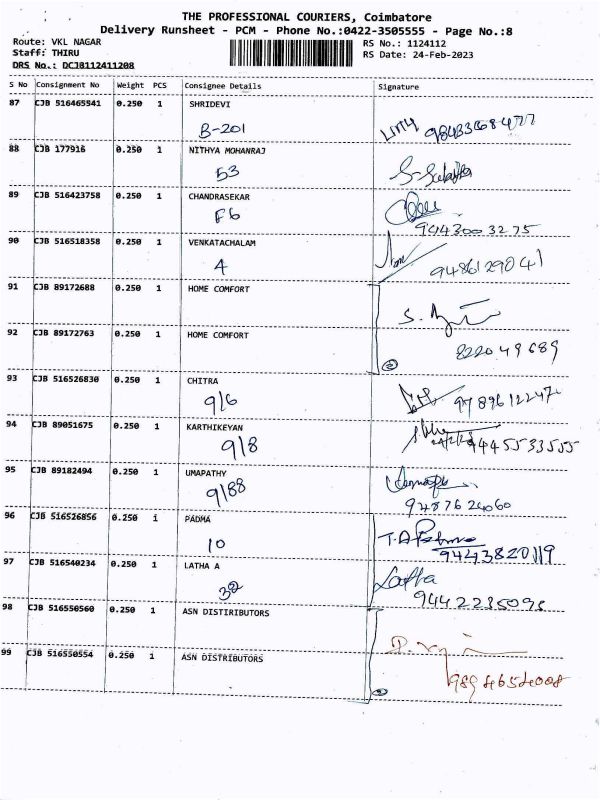 THE PROFESSIONAL COURIERS, Coimbatore
Delivery Runsheet - PCM - Phone No.:0422-3505555 - Page No.:8
Route: VKL NAGAR RS No.: 1124112
Staff: THIRU RS Date: 24-Feb-2023
DRS No.: DCJB112411208
S No Consignment No Weight PCS Consignee Details Signature
87 CJB 516465541 0.250 1 SHRIDEVI
B-201
88 CJB 177916 0.250 1 NITHYA MOHANRAJ
53
89 CJB 516423758 0.250 1 CHANDRASEKAR
F6 9443003275
90 CJB 516518358 0.250 1 VENKATACHALAM
4 9486129041
91 CJB 89172688 0.250 1 HOME COMFORT
92 CJB 89172763 0.250 1 HOME COMFORT
822049689
93 CJB 516526830 0.250 1 CHITRA
9/6
94 CJB 89051675 0.250 1 KARTHIKEYAN
9/8 9445533555
95 CJB 89182494 0.250 1 UMAPATHY
9/88 9487624060
96 CJB 516526856 0.250 1 PADMA
10 T.A Padma 9443820119
97 CJB 516540234 0.250 1 LATHA A
32 Latha 9442235095
98 CJB 516550560 0.250 1 ASN DISTIRIBUTORS
99 CJB 516550554 0.250 1 ASN DISTRIBUTORS
9894654008